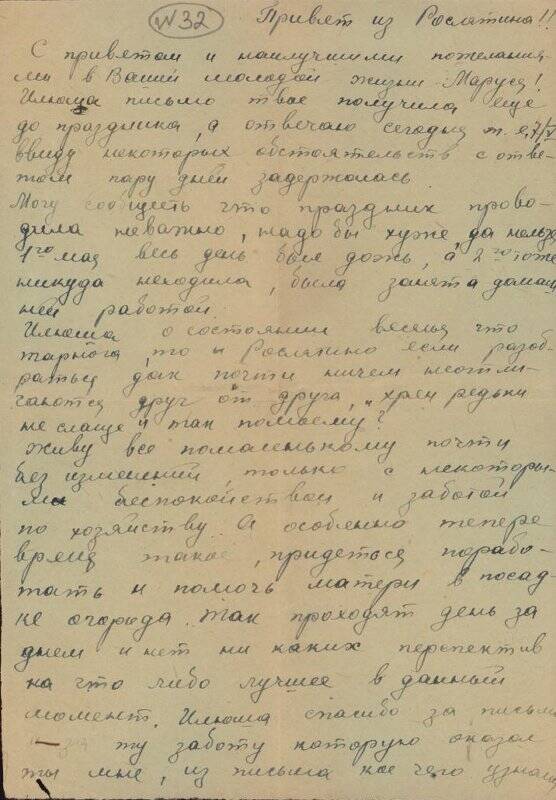 N 32 Привят из Рослятина!!
С приветом и наилучшими пожелания-
ми в Вашей молодой жизни Маруся!
Илюша письмо твое получила еще
до праздника, а отвечаю сегодня т. е. 7/V
ввиду некоторых обстоятельств с отве-
том пару дней задержалась.
Могу сообщить что праздник прово-
дила неважно, надо бы хуже, да нельзя
1го мая весь день был дождь, а 2го тоже
никуда неходила, была занята домаш
ней работой.
Илюша о состоянии веселья что
тарнога, то и Рослятино если разоб-
раться дак почти ничем неотли-
чаются друг от друга, "хрен редьки
не слаще" и так помоему?
Живу все помаленькому почти
без изменений, только с некоторы-
ми беспокойством и заботой
по хозяйству. А особенно тепере
время такое, придеться порабо-
тать и помочь матери в посад-
ке огорода. Так проходят день за
днем и нет ни каких перспектив
на что либо лучшее в данный
момент. Илюша спасибо за письмо
ту заботу которую оказал
ты мне, из письма кое чего узнала